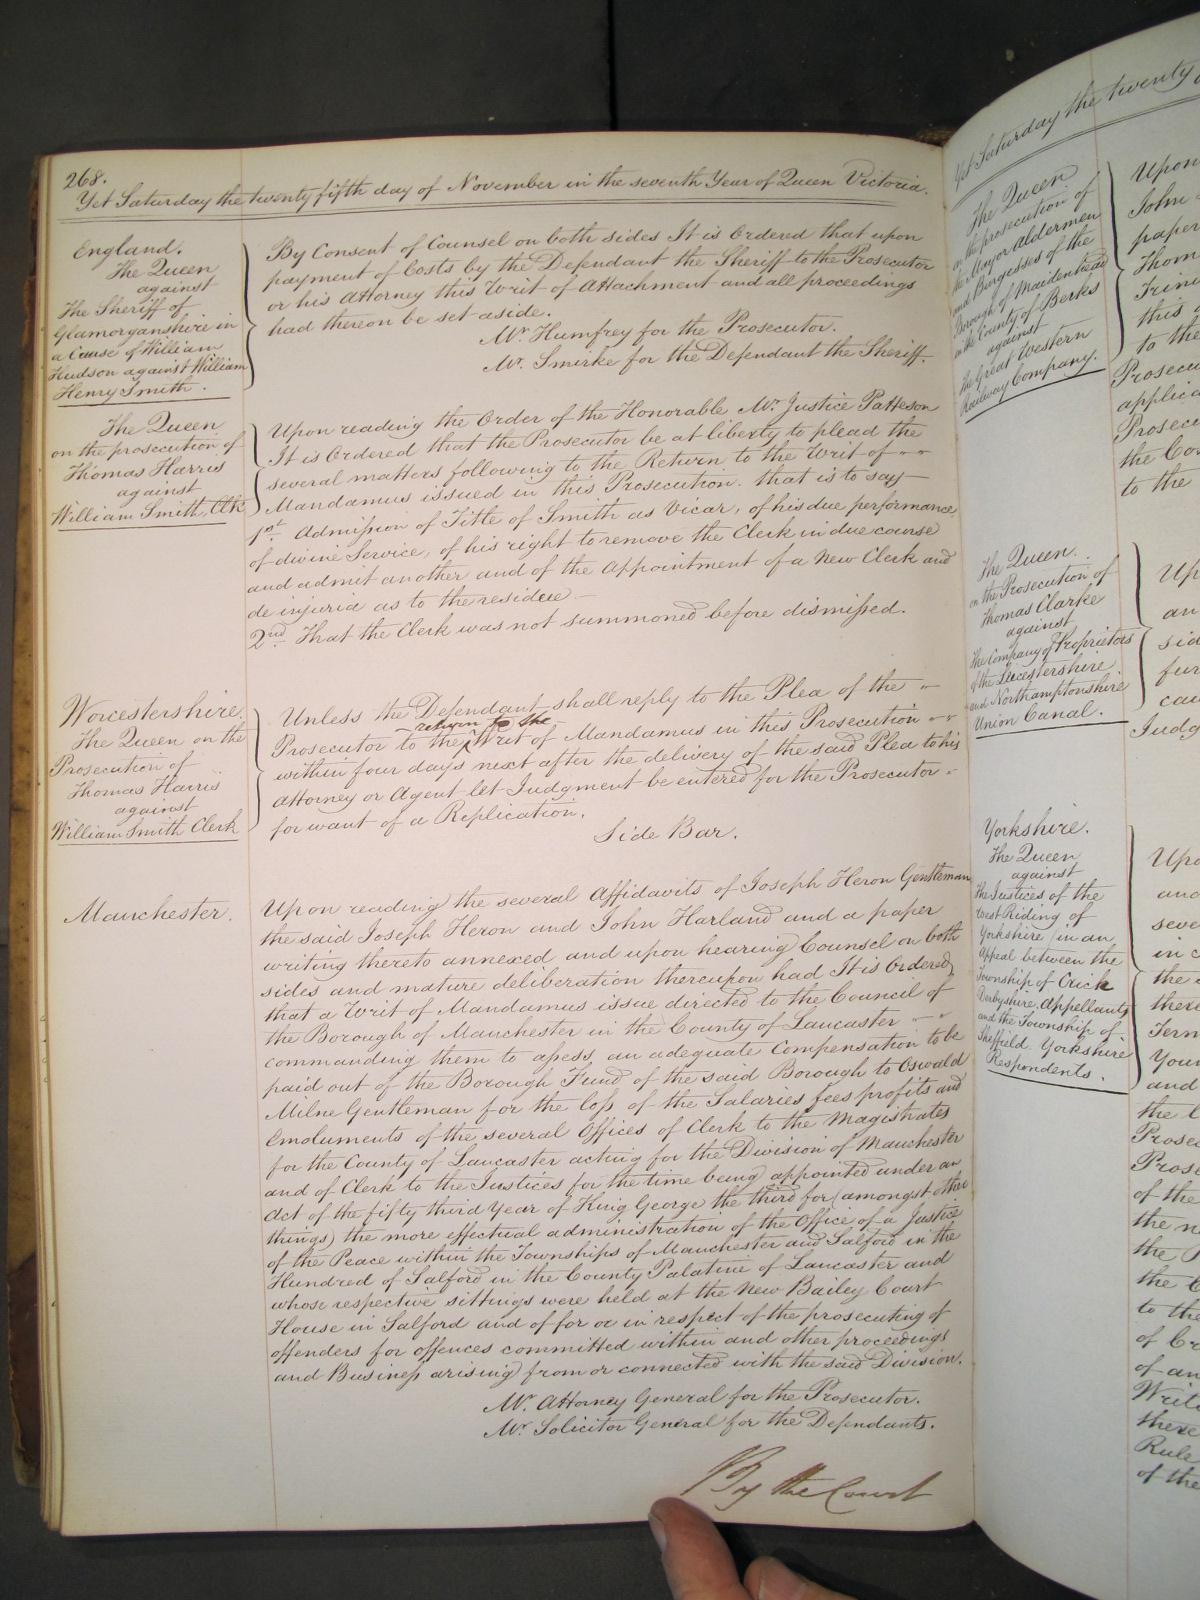 268.
Yet Saturday the twenty fifth day of November in the seventh Year of Queen Victoria.
England.
The Queen
against
The Sheriff of
Glamorganshire in
a Cause of William
Hudson against William
Henry Smith.
By Consent of Counsel on both sides It is Ordered that upon
payment of Costs by the Defendant the Sheriff to the Prosecutor
or his Attorney this Writ of Attachment and all proceedings
had thereon be set aside.
Mr. Humfrey for the Prosecutor.
Mr. Smirke for the Defendant the Sheriff.
The Queen
on the prosecution of
Thomas Harris
against
William Smith, Clk
Upon reading the Order of the Honorable Mr. Justice Patteson
It is Ordered that the Prosecutor be at liberty to plead the
several matters following to the Return to the Writ of
Mandamus issued in this Prosecution. that is to say
1st. Admission of Title of Smith as Vicar, of his due performance
of divine Service, of his right to remove the Clerk in due course
and admit another and of the Appointment of a New Clerk and
de injuria as to the residue
2nd. That the Clerk was not summoned before dismissed.
Worcestershire.
The Queen on the
Prosecution of
Thomas Harris
against
William Smith Clerk
Unless the Defendant shall reply to the Plea of the
return to the
Prosecutor to the Writ of Mandamus in this Prosecution
within four days next after the delivery of the said Plea to his
Attorney or Agent let Judgment be entered for the Prosecutor
for want of a Replication.
Side Bar.
Manchester.
Upon reading the several Affidavits of Joseph Heron Gentleman
the said Joseph Heron and John Harland and a paper
writing thereto annexed and upon hearing Counsel on both
sides and mature deliberation thereupon had It is Ordered
that a Writ of Mandamus issue directed to the Council of
the Borough of Manchester in the County of Lancaster
commanding them to assess an adequate Compensation to be
paid out of the Borough Fund of the said Borough to Oswald
Milne Gentleman for the loss of the Salaries fees profits and
Emoluments of the several Offices of Clerk to the Magistrates
for the County of Lancaster acting for the Division of Manchester
and of Clerk to the Justices for the time being appointed under an
Act of the fifty third Year of King George the third for (amongst other
things) the more effectual administration of the Office of a Justice
of the Peace within the Townships of Manchester and Salford in the
Hundred of Salford in the County Palatine of Lancaster and
whose respective sittings were held at the New Bailey Court
House in Salford and of for or in respect of the prosecuting of
offenders for offences committed within and other proceedings
and Business arising from or connected with the said Division.
Mr. Attorney General for the Prosecutor.
Mr. Solicitor General for the Defendants.
By the Court
Yet Saturday the twenty
The Queen
on the prosecution of
the Mayor Aldermen
and Burgesses of the
Borough of Maidenhead
in the County of Berks
against
The Great Western
Railway Company.
Upon
John
paper
Thom
Trini
this
to the
Prosecu
applica
Prosecu
the Cou
to the
The Queen.
on the Prosecution of
Thomas Clarke
against
The Company of Proprietors
of the Leicestershire
and Northamptonshire
Union Canal.
Up
an
sid
fur
cau
Judg
Yorkshire.
The Queen
against
The Justices of the
West Riding of
Yorkshire (in an
Appeal between the
Township of Crick
Derbyshire, Appellants
and the Township of
Sheffield Yorkshire
Respondents.
Upo
and
seve
in c
the
there
Term
Your
and
the
Prosec
Prose
of the
the n
the
the C
to the
of Cr
of an
Writ
there
Rule
of the